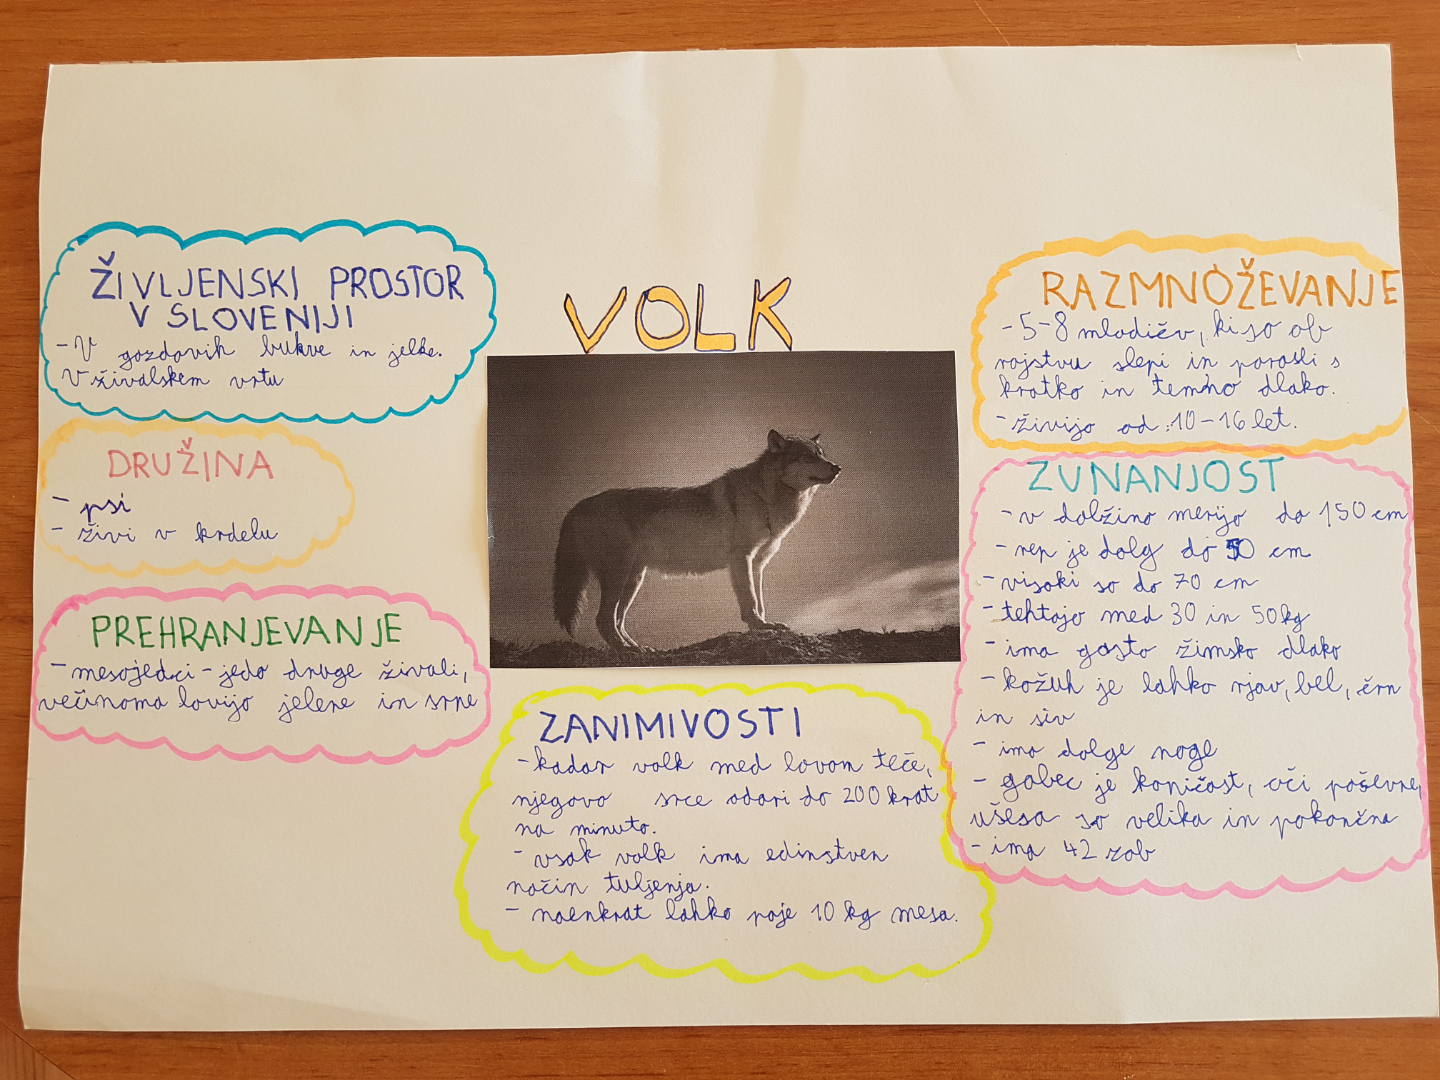 VOLK
ŽIVLJENSKI PROSTOR
V SLOVENIJI
- V gozdovih bukve in jelke.
V živalskem vrtu
DRUŽINA
- psi
- živi v krdelu
PREHRANJEVANJE
- mesojedci - jedo druge živali,
večinoma lovijo jelene in srne
ZANIMIVOSTI
- kadar volk med lovom teče,
njegovo srce udari do 200 krat
na minuto.
- vsak volk ima edinstven
način tuljenja.
- naenkrat lahko poje 10 kg mesa.
RAZMNOŽEVANJE
- 5-8 mladičev, ki so ob
rojstvu slepi in porasli s
kratko in temno dlako.
- živijo od 10-16 let.
ZUNANJOST
- v dolžino merijo do 150 cm
- rep je dolg do 50 cm
- visoki so do 70 cm
- tehtajo med 30 in 50 kg
- ima gosto žimsko dlako
- kožuh je lahko rjav, bel, črn
in siv
- ima dolge noge
- gobec je koničast, oči poševne,
ušesa so velika in pokončna
- ima 42 zob